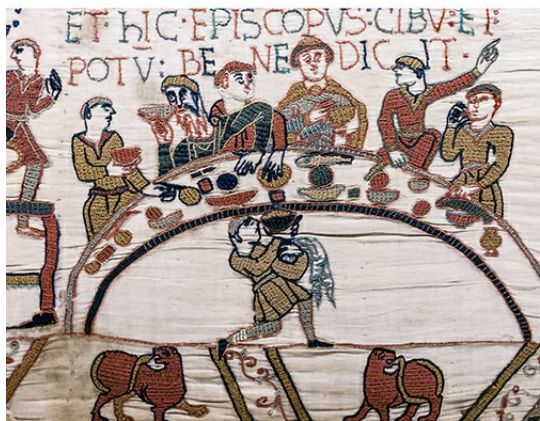 ET·hIC·EPISCOPVS:CIBV:ET:
POTV̄:BE NE DIC IT·